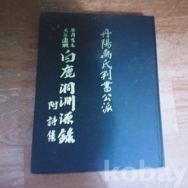 丹陽禹氏判書公派
白鹿洞淵源錄
阿詩集
kobay